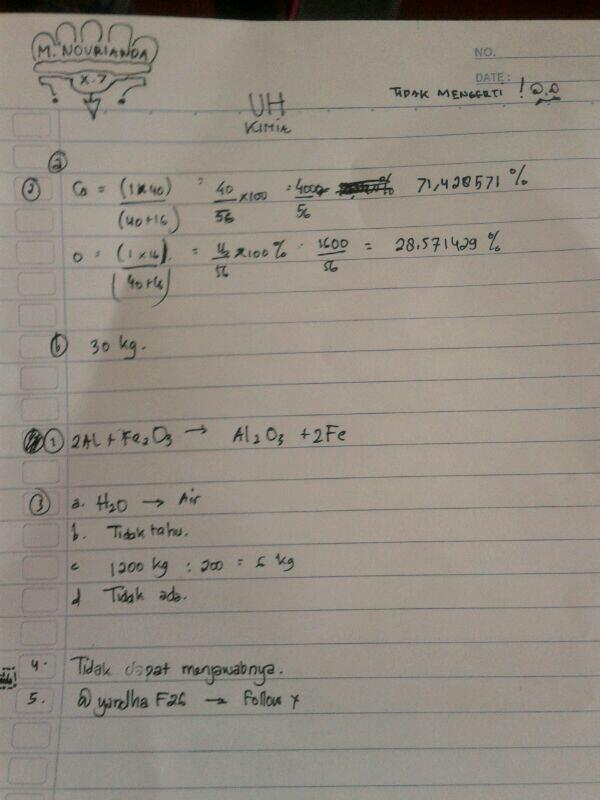 M. NOURIANDA
X.7
NO.
DATE:
TIDAK MENGERTI !
UH
KIMIA
a
2 Ca = (1x40) / (40+16) = 40/56 x100 = 4000/56 71,428571 %
O = (1 x 16) / (40+16) = 16/56 x100% = 1600/56 = 28.571429 %
b 30 kg.
1 2Al + Fe2O3 → Al2O3 + 2Fe
3 a. H2O → Air
b. Tidak tahu.
c 1200 kg : 200 = 6 kg
d Tidak ada.
4. Tidak dapat menjawabnya.
5. @yandha F26 → Follow